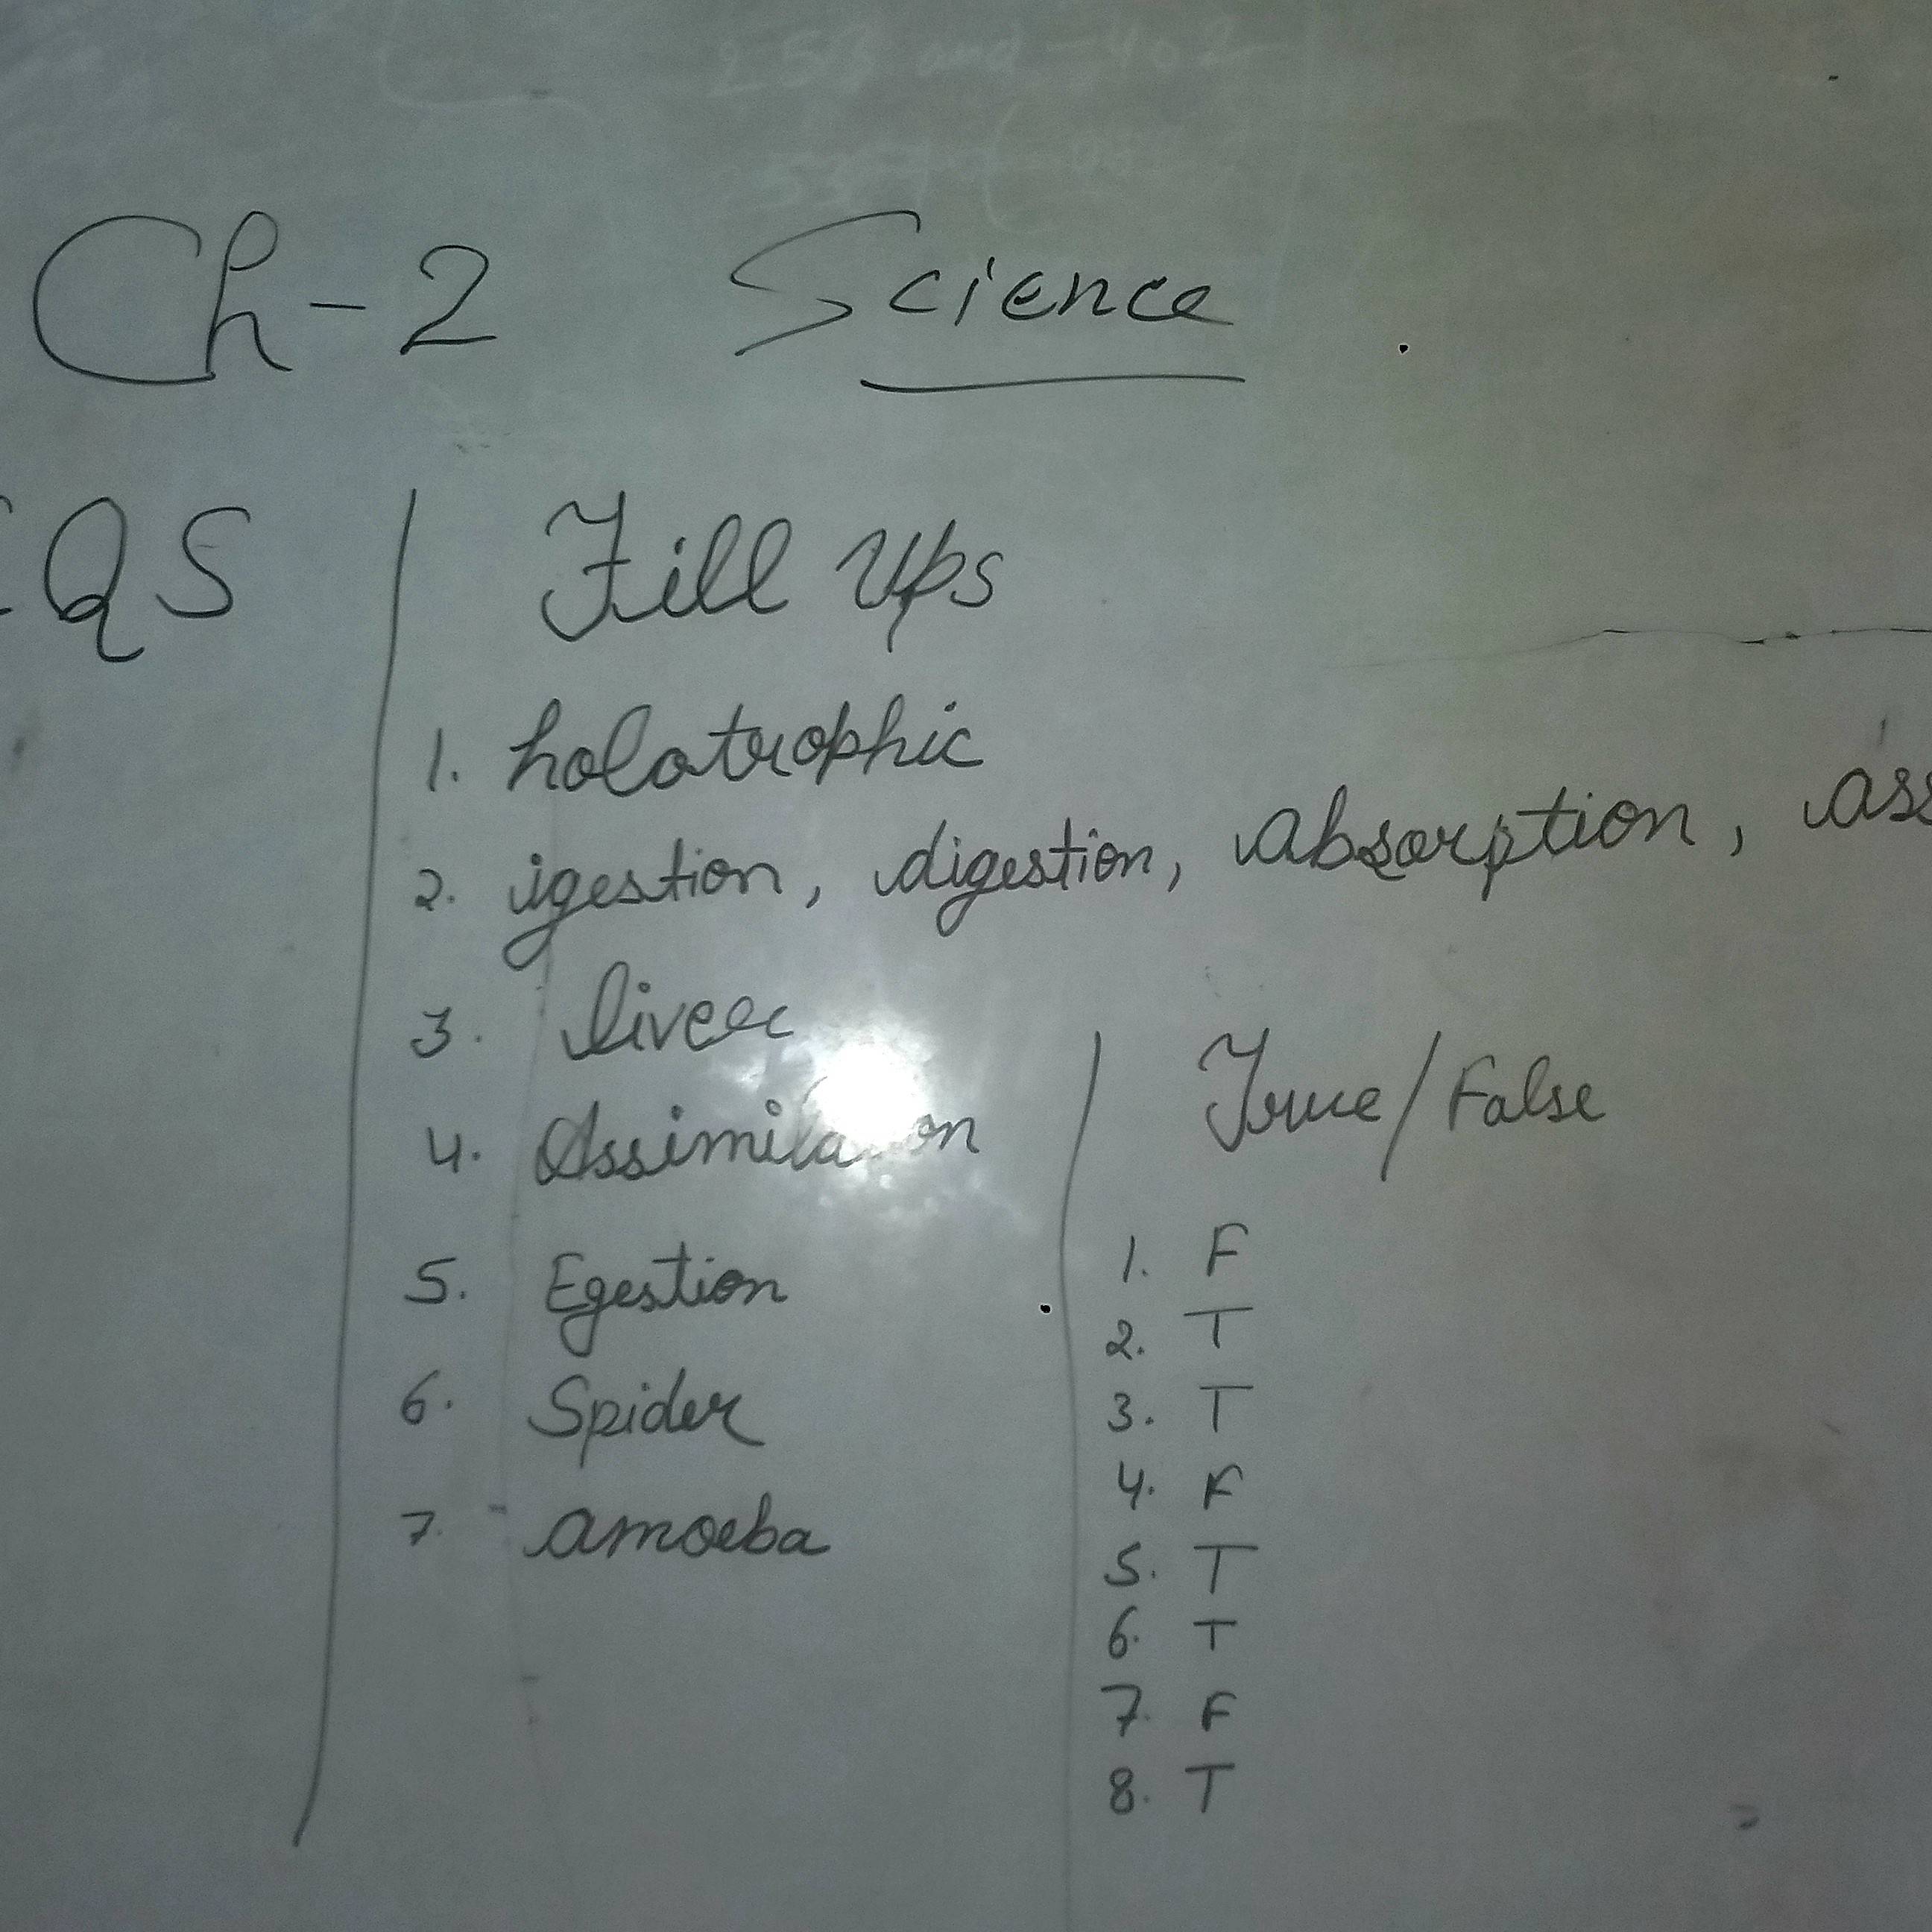 Ch-2 Science
QS
Fill Ups
1. holotrophic
2. igestion, digestion, absorption, ass
3. liver
4. Assimila on
5. Egestion
6. Spider
7. amoeba
True/False
1. F
2. T
3. T
4. F
5. T
6. T
7. F
8. T